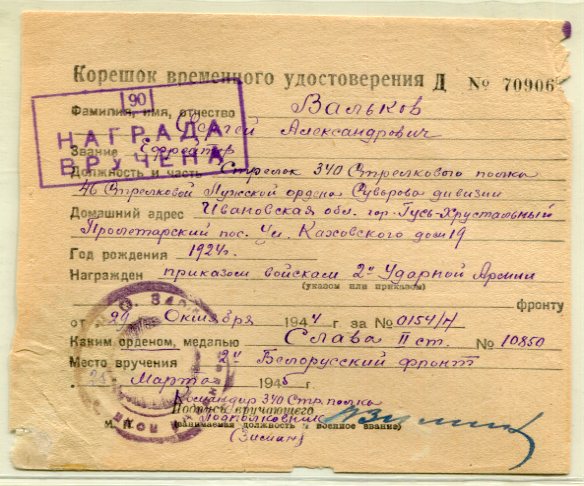 Корешок временного удостоверения Д № 70906
90
НАГРАДА
ВРУЧЕНА
Фамилия, имя, отчество Вальков
Сергей Александрович
Звание Ефрейтор
Должность и часть Стрелок 340 Стрелкового полка
46 Стрелковой Лужской ордена Суворова дивизии
Домашний адрес Ивановская обл. гор. Гусь-Хрустальный
Пролетарский пос. Ул. Каховского дом 19
Год рождения 1924 г.
Награжден приказом войскам 2й Ударной Армии
(указом или приказом)
фронту
от 29 Октября 1944 г. за № 0154/Н
Каким орденом, медалью Слава II ст. № 10850
Место вручения 2й Белорусский фронт
25 Марта 1945 г.
Командир 340 Стр. полка
Подпись вручающего
Подполковник
М. П. (занимаемая должность и военное звание)
(Зисман)